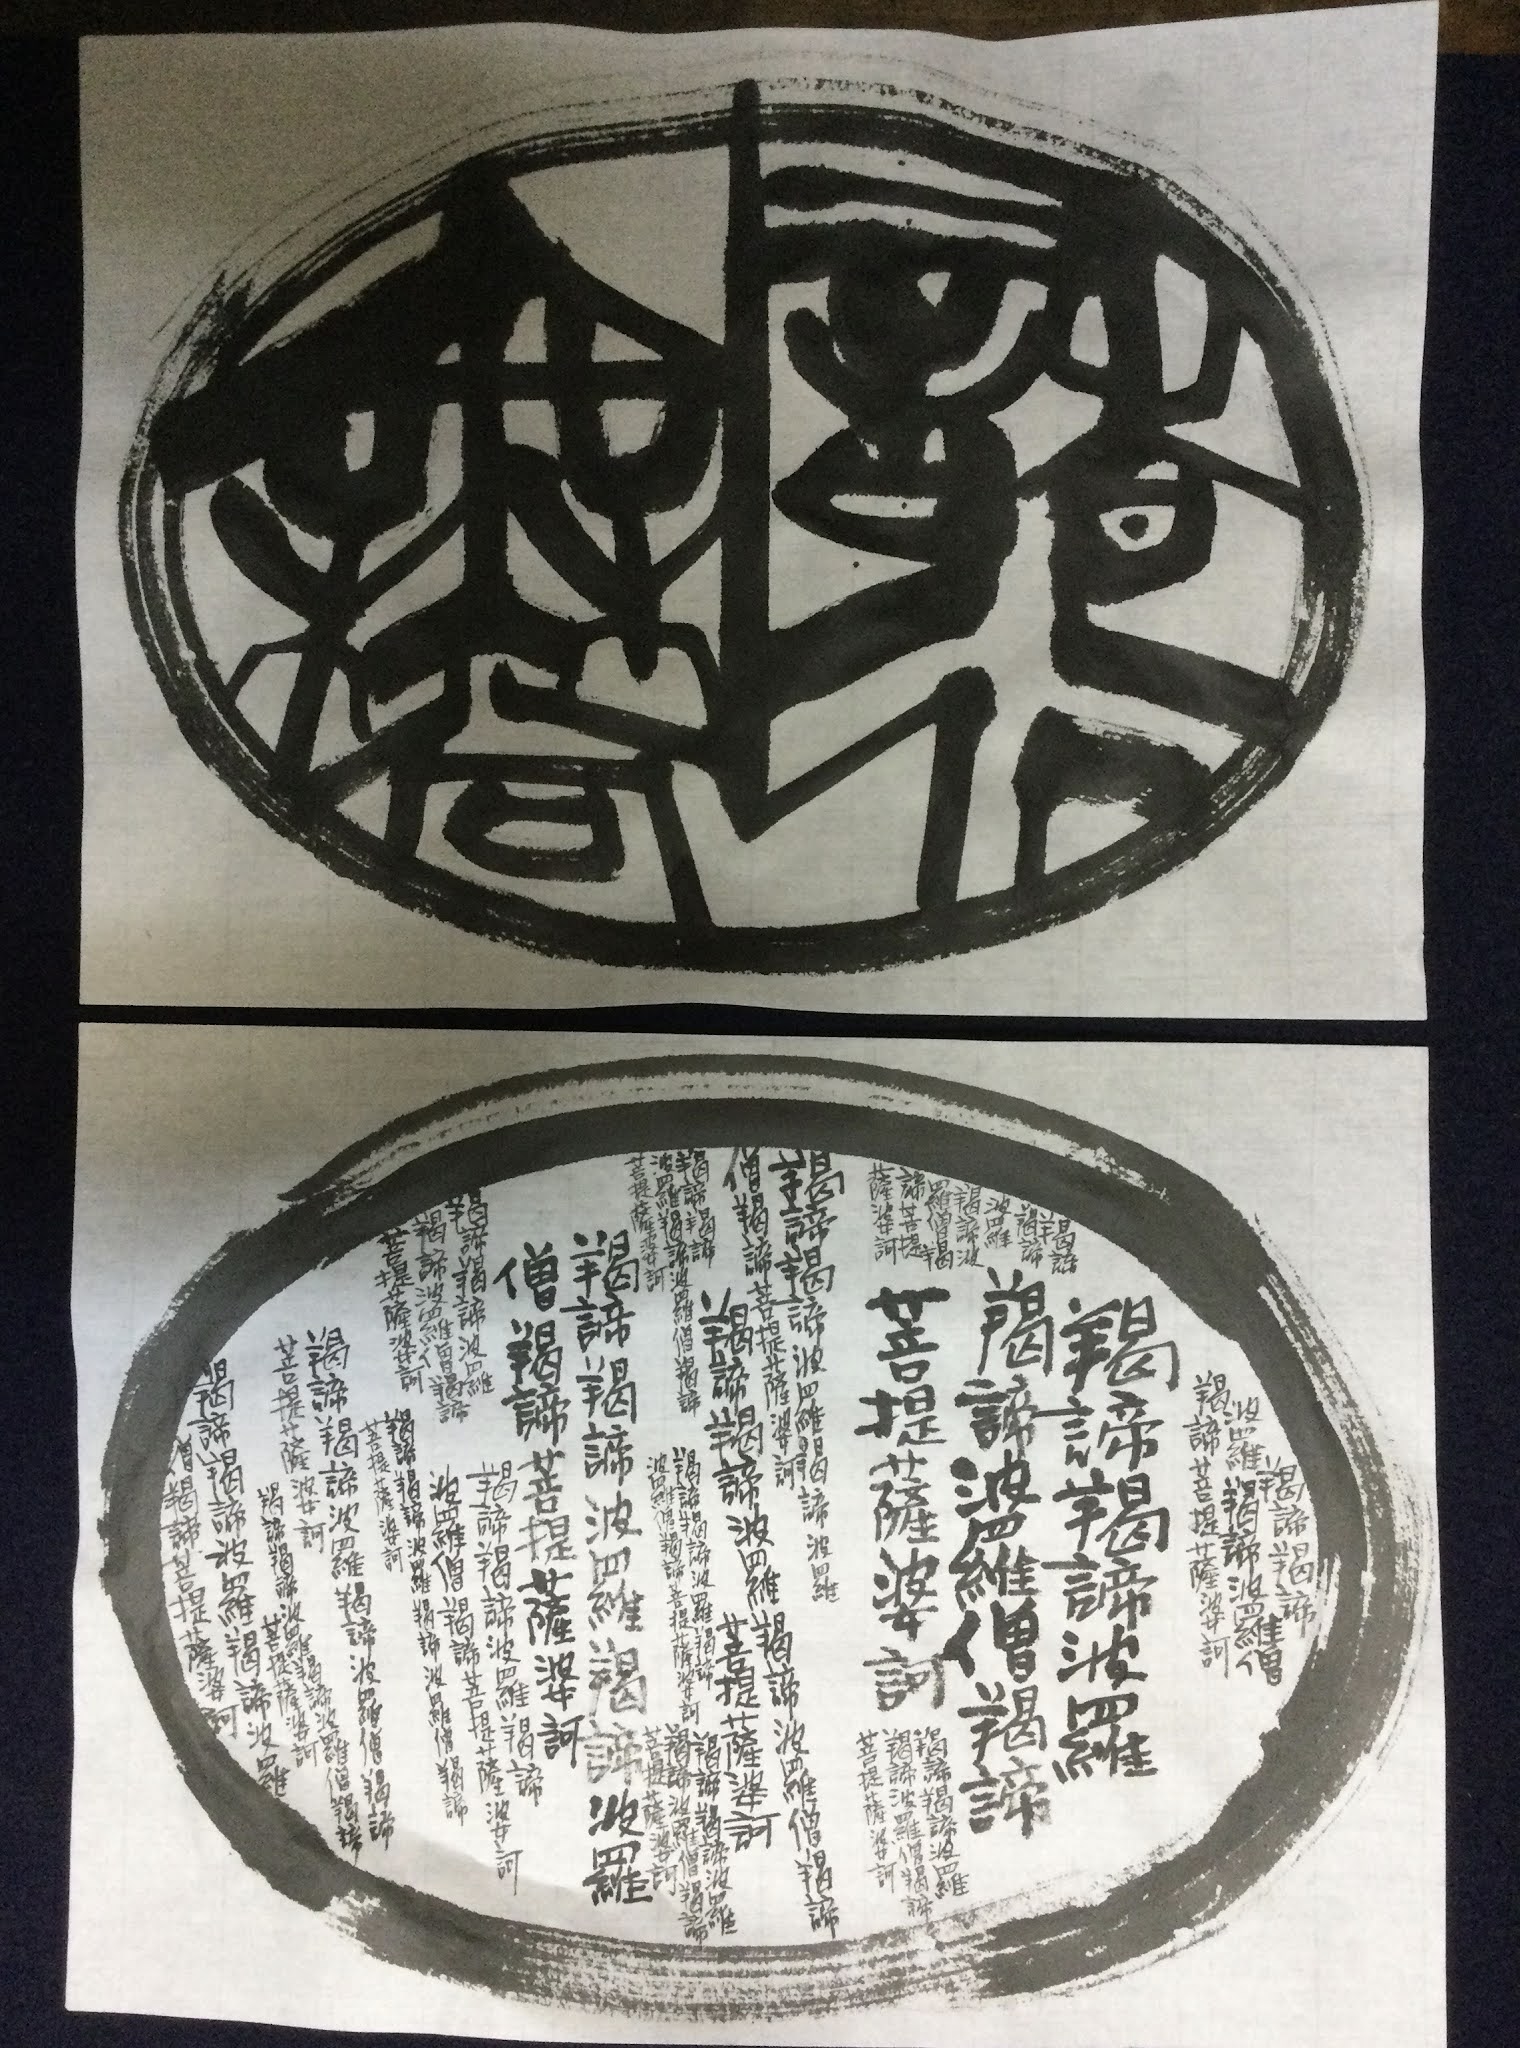 羯諦羯諦
波羅羯諦波羅僧
羯諦菩提薩婆訶
羯諦
羯諦
波羅
羯諦波
羅僧羯
諦菩提
薩婆訶
羯諦羯諦波羅
羯諦波羅僧羯諦
菩提薩婆訶
羯諦羯諦波羅
羯諦波羅僧羯諦
菩提薩婆訶
羯諦羯諦波羅羯諦波羅
僧羯諦菩提薩婆訶
羯諦羯諦波羅羯諦波羅僧羯諦
菩提薩婆訶
羯諦羯諦
波羅羯諦波羅僧羯諦
菩提薩婆訶
羯諦羯諦波羅羯諦
波羅僧羯諦菩提薩婆訶
羯諦羯諦波羅
羯諦波羅僧羯諦
菩提薩婆訶
羯諦羯諦波羅羯諦波羅
僧羯諦菩提薩婆訶
羯諦羯諦波羅
羯諦波羅僧羯諦
菩提薩婆訶
羯諦羯諦波羅羯諦
波羅僧羯諦菩提薩婆訶
羯諦羯諦波羅羯諦波羅僧羯諦
菩提薩婆訶
羯諦羯諦波羅羯諦波羅僧羯諦
菩提薩婆訶
羯諦羯諦波羅羯諦波羅僧羯諦
菩提薩婆訶
羯諦羯諦波羅羯諦波羅
僧羯諦菩提薩婆訶